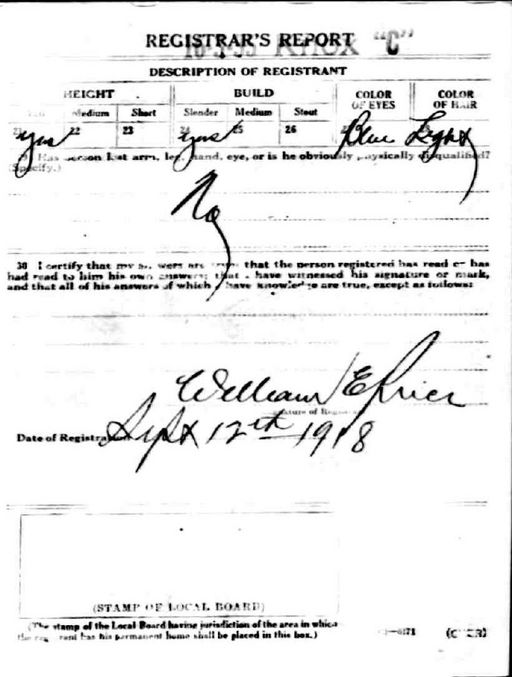 REGISTRAR'S REPORT
"C"
DESCRIPTION OF REGISTRANT
HEIGHT BUILD COLOR OF EYES COLOR OF HAIR
Medium Short Slender Medium Stout
21 yes 22 23 24 yes 25 26 Blue Light
Has person lost arm, leg, hand, eye, or is he obviously physically disqualified?
(Specify.)
No
30 I certify that my answers are true; that the person registered has read or has
had read to him his own answers; that I have witnessed his signature or mark,
and that all of his answers of which I have knowledge are true, except as follows:
William E
Signature of
Date of Registration Sept 12th 1918
(STAMP OF LOCAL BOARD)
(The stamp of the Local Board having jurisdiction of the area in which
the registrant has his permanent home shall be placed in this box.)
(OVER)